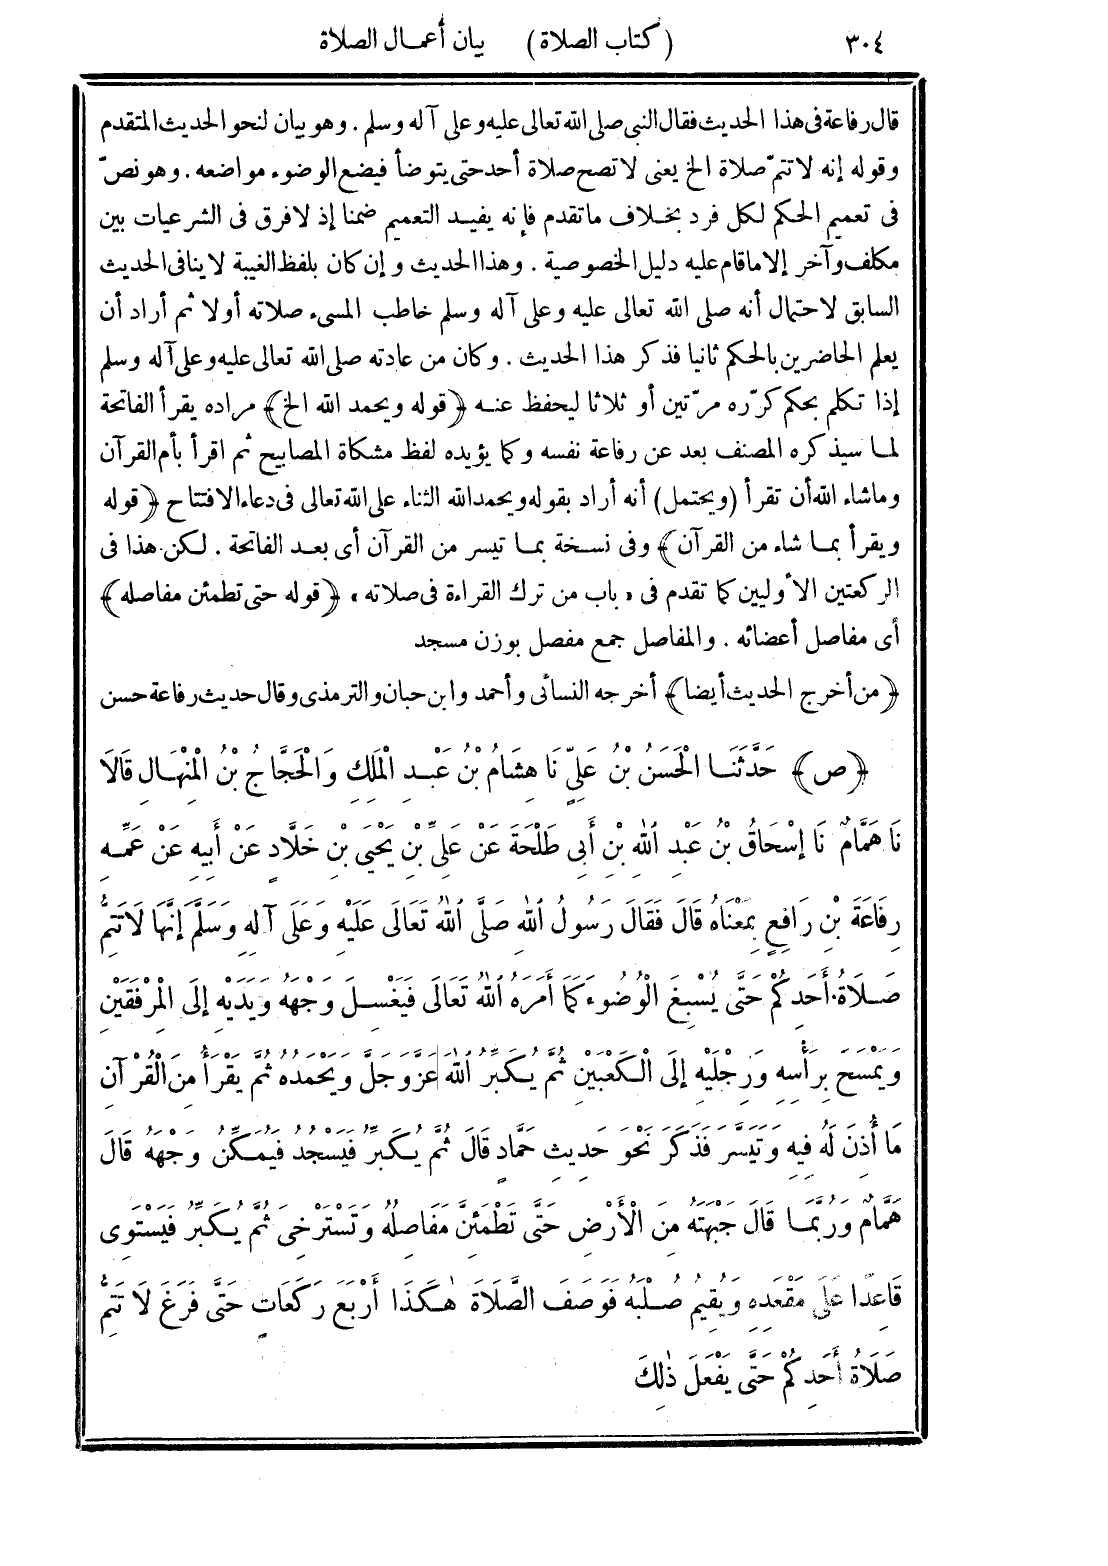 ٣٠٤ (كتاب الصلاة) بيان أعمال الصلاة
قال رفاعة فى هذا الحديث فقال النبى صلى الله تعالى عليه وعلى آله وسلم . وهو بيان لنحو الحديث المتقدم
وقوله إنه لا تتمّ صلاة الخ يعنى لا تصح صلاة أحد حتى يتوضأ فيضع الوضوء مواضعه . وهو نصّ
فى تعميم الحكم لكل فرد بخلاف ما تقدم فإنه يفيد التعميم ضمنا إذ لا فرق فى الشرعيات بين
مكلف وآخر إلا ما قام عليه دليل الخصوصية . وهذا الحديث وإن كان بلفظ الغيبة لا ينافى الحديث
السابق لاحتمال أنه صلى الله تعالى عليه وعلى آله وسلم خاطب المسىء صلاته أولا ثم أراد أن
يعلم الحاضرين بالحكم ثانيا فذكر هذا الحديث . وكان من عادته صلى الله تعالى عليه وعلى آله وسلم
إذا تكلم بحكم كرّره مرّتين أو ثلاثا ليحفظ عنه ﴿قوله ويحمد الله الخ﴾ مراده يقرأ الفاتحة
لما سيذكره المصنف بعد عن رفاعة نفسه وكما يؤيده لفظ مشكاة المصابيح ثم اقرأ بأم القرآن
وماشاء الله أن تقرأ (ويحتمل) أنه أراد بقوله ويحمد الله الثناء على الله تعالى فى دعاء الافتتاح ﴿قوله
ويقرأ بما شاء من القرآن﴾ وفى نسخة بما تيسر من القرآن أى بعد الفاتحة . لكن هذا فى
الركعتين الأوليين كما تقدم فى «باب من ترك القراءة فى صلاته» ﴿قوله حتى تطمئن مفاصله﴾
أى مفاصل أعضائه . والمفاصل جمع مفصل بوزن مسجد
﴿من أخرج الحديث أيضا﴾ أخرجه النسائى وأحمد وابن حبان والترمذى وقال حديث رفاعة حسن
﴿ص﴾ حَدَّثَنَا الْحَسَنُ بْنُ عَلِىٍّ نَا هِشَامُ بْنُ عَبْدِ الْمَلِكِ وَالْحَجَّاجُ بْنُ الْمِنْهَالِ قَالَا
نَا هَمَّامٌ نَا إِسْحَاقُ بْنُ عَبْدِ اللهِ بْنِ أَبِى طَلْحَةَ عَنْ عَلِىِّ بْنِ يَحْيَى بْنِ خَلَّادٍ عَنْ أَبِيهِ عَنْ عَمِّهِ
رِفَاعَةَ بْنِ رَافِعٍ بِمَعْنَاهُ قَالَ فَقَالَ رَسُولُ اللهِ صَلَّى اللهُ تَعَالَى عَلَيْهِ وَعَلَى آلِهِ وَسَلَّمَ إِنَّهَا لَا تَتِمُّ
صَلَاةُ أَحَدِكُمْ حَتَّى يُسْبِغَ الْوُضُوءَ كَمَا أَمَرَهُ اللهُ تَعَالَى فَيَغْسِلَ وَجْهَهُ وَيَدَيْهِ إِلَى الْمِرْفَقَيْنِ
وَيَمْسَحَ بِرَأْسِهِ وَرِجْلَيْهِ إِلَى الْكَعْبَيْنِ ثُمَّ يُكَبِّرُ اللهَ عَزَّ وَجَلَّ وَيَحْمَدُهُ ثُمَّ يَقْرَأُ مِنَ الْقُرْآنِ
مَا أُذِنَ لَهُ فِيهِ وَتَيَسَّرَ فَذَكَرَ نَحْوَ حَدِيثِ حَمَّادٍ قَالَ ثُمَّ يُكَبِّرُ فَيَسْجُدُ فَيُمَكِّنُ وَجْهَهُ قَالَ
هَمَّامٌ وَرُبَّمَا قَالَ جَبْهَتَهُ مِنَ الْأَرْضِ حَتَّى تَطْمَئِنَّ مَفَاصِلُهُ وَتَسْتَرْخِىَ ثُمَّ يُكَبِّرُ فَيَسْتَوِى
قَاعِدًا عَلَى مَقْعَدِهِ وَيُقِيمُ صُلْبَهُ فَوَصَفَ الصَّلَاةَ هٰكَذَا أَرْبَعَ رَكَعَاتٍ حَتَّى فَرَغَ لَا تَتِمُّ
صَلَاةُ أَحَدِكُمْ حَتَّى يَفْعَلَ ذٰلِكَ